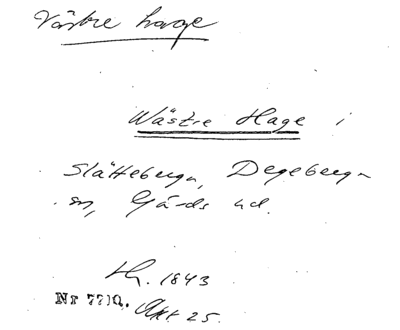 Västre hage
Wästre Hage i
Slätteberga, Degeberga
sn, Gärds hd.
Lh. 1843
Nr 7710. Akt 25.